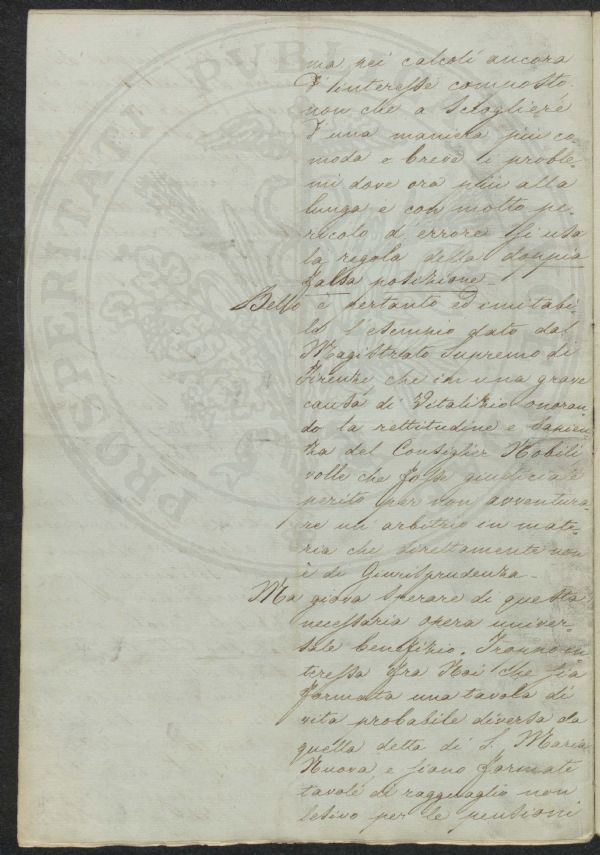 ma nei calcoli ancora
d'interesse composto
non che a sciogliere
d'una maniera piu co,
moda e breve i proble,
mi dove ora più alla
lunga e con molto pe,
ricolo d'errore si usa
la regola della doppia
falsa posizione_
Bello è pertanto ed imitabi,
le l'esempio dato dal
Magistrato Supremo di
Firenze che in una grave
causa di Vitalizio onoran,
do la rettitudine e sapien,
za del Consiglier Nobili
volle che fosse giudice e
perito per non avventura,
re un arbitrio in mate,
ria che direttamente non
è di Giurisprudenza_
Ma giova sperare di questa
necessaria opera univer,
sale benefizio. Troppo in,
teressa fra Noi che sia
formata una tavola di
vita probabile diversa da
quella detta di S. Maria
Nuova e siano formate
tavole di ragguaglio non
lesivo per le pensioni
PROSPERITATI PVBLICAE